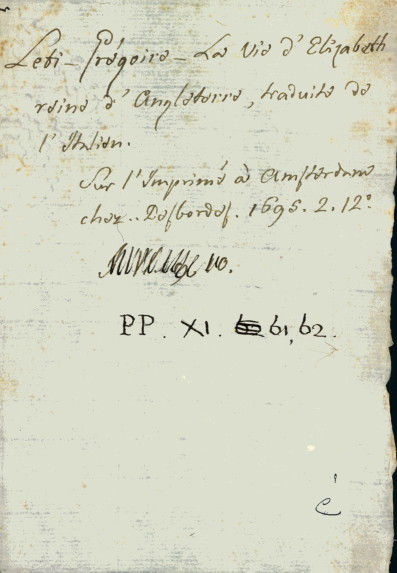 Leti - Grégoire - La Vie d'Elizabeth
reine d'Angleterre, traduite de
l'Italien.
Sur l'Imprimé à Amsterdame
chez.. Desbordes. 1695. 2. 12°
PP. XI. 61, 62.